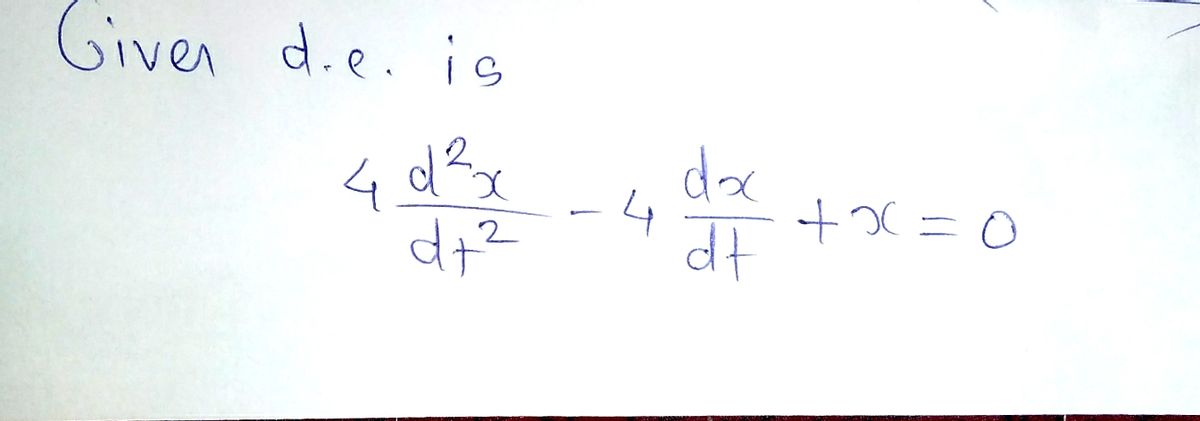 Given d.e. is
4 d²x/dt² - 4 dx/dt + x = 0